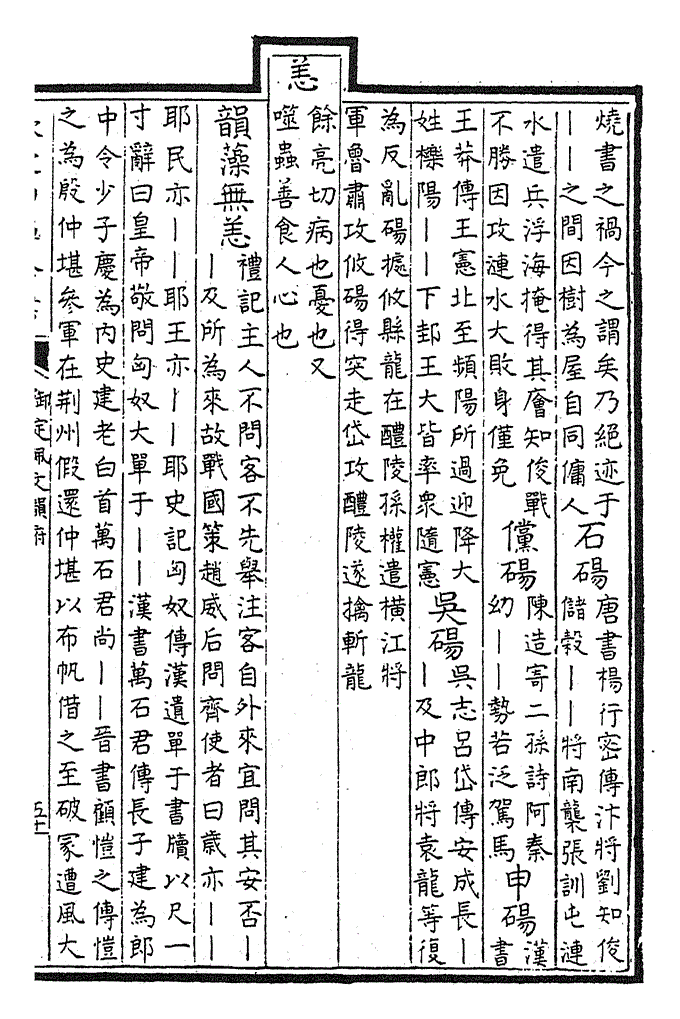 燒書之禍今之謂矣乃絕迹于
丨丨之間因樹為屋自同傭人
石碭
唐書楊行密傳汴將劉知俊
儲榖丨丨將南襲張訓屯漣
水遣兵浮海掩得其麕知俊戰
不勝因攻漣水大敗身僅免
儻碭
陳造寄二孫詩阿秦
幼丨丨勢若泛駕馬
申碭
漢
書
王莽傳王憲北至頻陽所過迎降大
姓櫟陽丨丨下邽王大皆率衆隨憲
吳碭
吳志呂岱傳安成長丨
丨及中郎將袁龍等復
為反亂碭據攸縣龍在醴陵孫權遣橫江將
軍魯肅攻攸碭得突走岱攻醴陵遂擒斬龍
恙
餘亮切病也憂也又
噬蟲善食人心也
韻藻無恙
禮記主人不問客不先舉注客自外來宜問其安否丨
丨及所為來故戰國策趙威后問齊使者曰歲亦丨丨
耶民亦丨丨耶王亦丨丨耶史記匈奴傳漢遺單于書牘以尺一
寸辭曰皇帝敬問匈奴大單于丨丨漢書萬石君傳長子建為郎
中令少子慶為內史建老白首萬石君尚丨丨晉書顧愷之傳愷
之為殷仲堪參軍在荆州假還仲堪以布帆借之至破冢遭風大
御定佩文韻府
五十